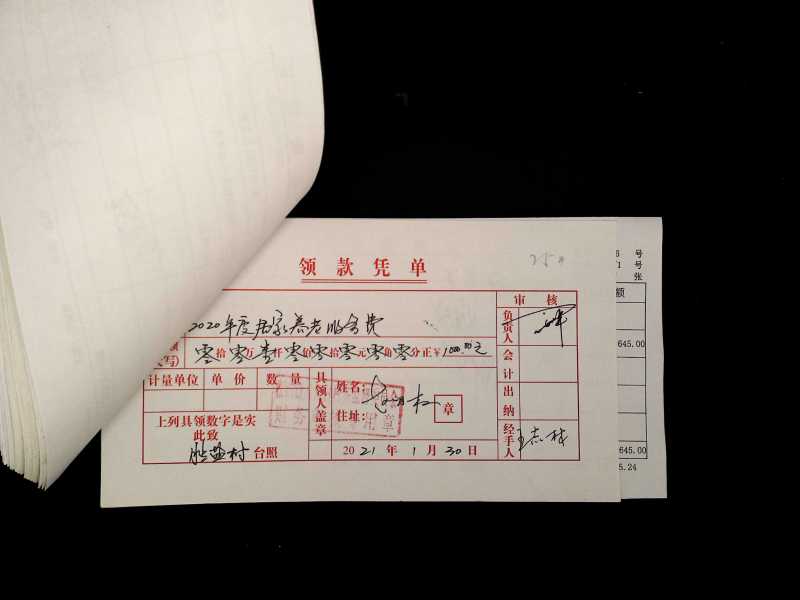 领款凭单
审核
2020年度居家养老服务费
负责人
写)零拾零万壹仟零佰零拾零元零角零分正￥1000.00元
会计
计量单位 单价 数量
具领人盖章
姓名:
住址:
章
出纳
上列具领数字是实
此致
台照
2021年1月30日
经手人
王志林
财务 用章
号
1 号
张
额
645.00
645.00
5.24